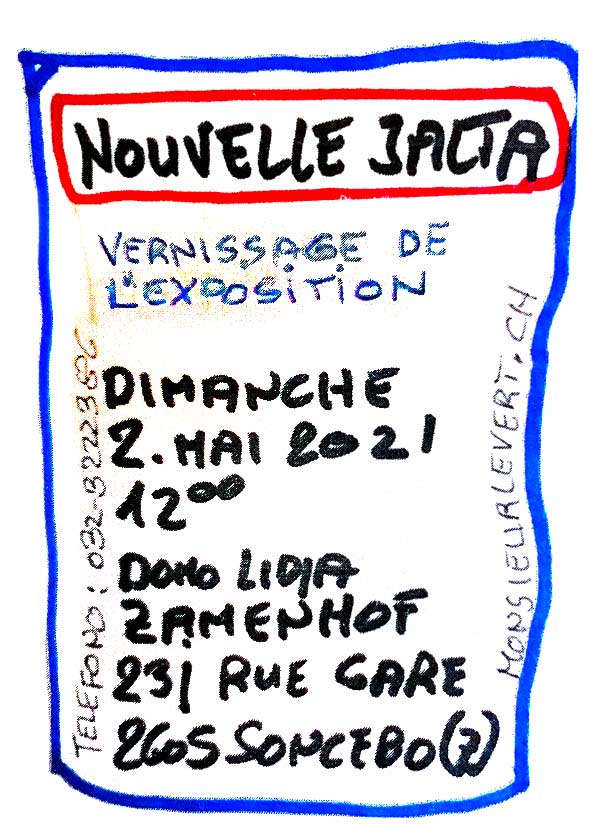 NOUVELLE JALTA
VERNISSAGE DE
L'EXPOSITION
DIMANCHE
2. MAI 2021
12⁰⁰
DOMO LIDJA
ZAMENHOF
231 RUE GARE
2605 SONCEBO(Z)
TELEFONO:
MONSIEURLEVERT.CH